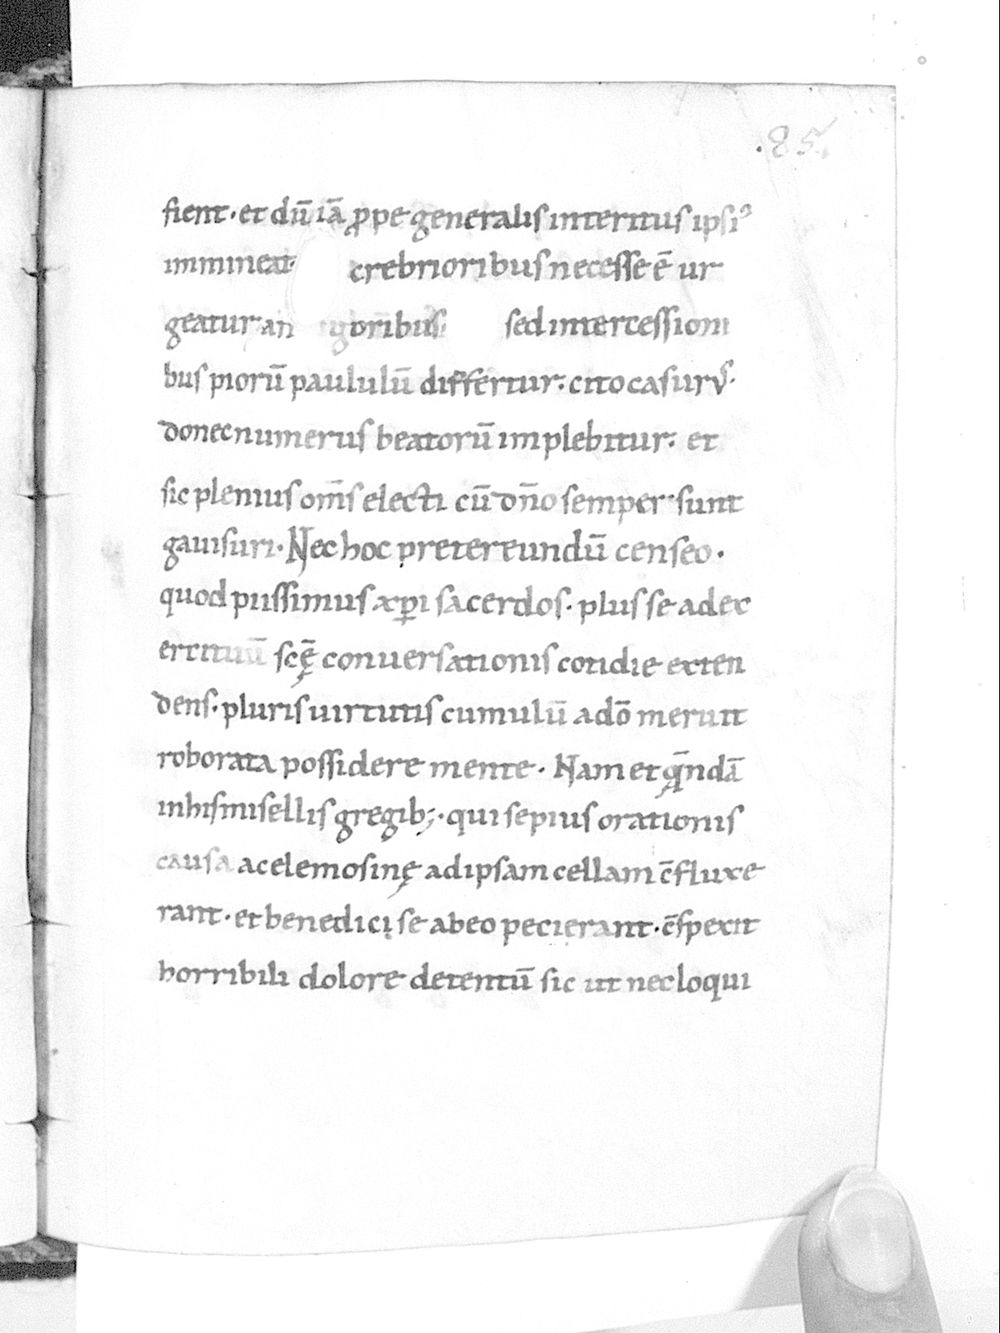 .85.
fient · et dū iā ꝓpe generalis interitus ipsiꝰ
immineat· crebrioribus necesse ē ur
geatur an goribus sed intercessioni
bus piorū paululū differtur; cito casurꝰ·
donec numerus beatorū implebitur; et
sic plenius om̄s electi cū dn̄o semper sunt
gauisuri · Nec hoc pretereundū censeo ·
quod piissimus xp̄i sacerdos · plus se ad ex
ercituū scę̄ conuersationis cotidie exten
dens · pluris uirtutis cumulū a dō meruit
roborata possidere mente · Nam et q̄ndā
in his misellis gregib; · qui sepius orationis
causa ac elemosinę ad ipsam cellam c̄fluxe
rant · et benedici se ab eo pecierant · c̄spexit
horribili dolore detentū sic ut nec loqui